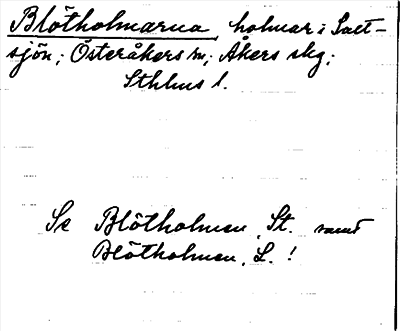 Blötholmarna, holmar i Salt-
sjön; Österåkers sn; Åkers skg;
Sthlms l.
Se Blötholmen, St. samt
Blötholmen, L. !